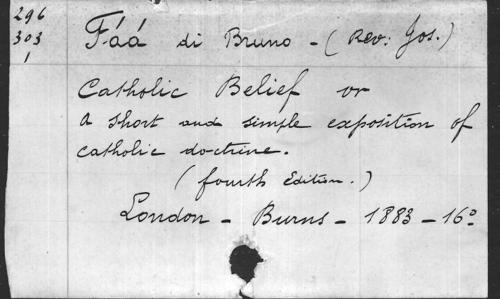 296
303
1
Fáá di Bruno - (Rev: Jos.)
Catholic Belief or
a short and simple exposition of
catholic doctrine.
(fourth Edition.)
London - Burns - 1883 - 16º